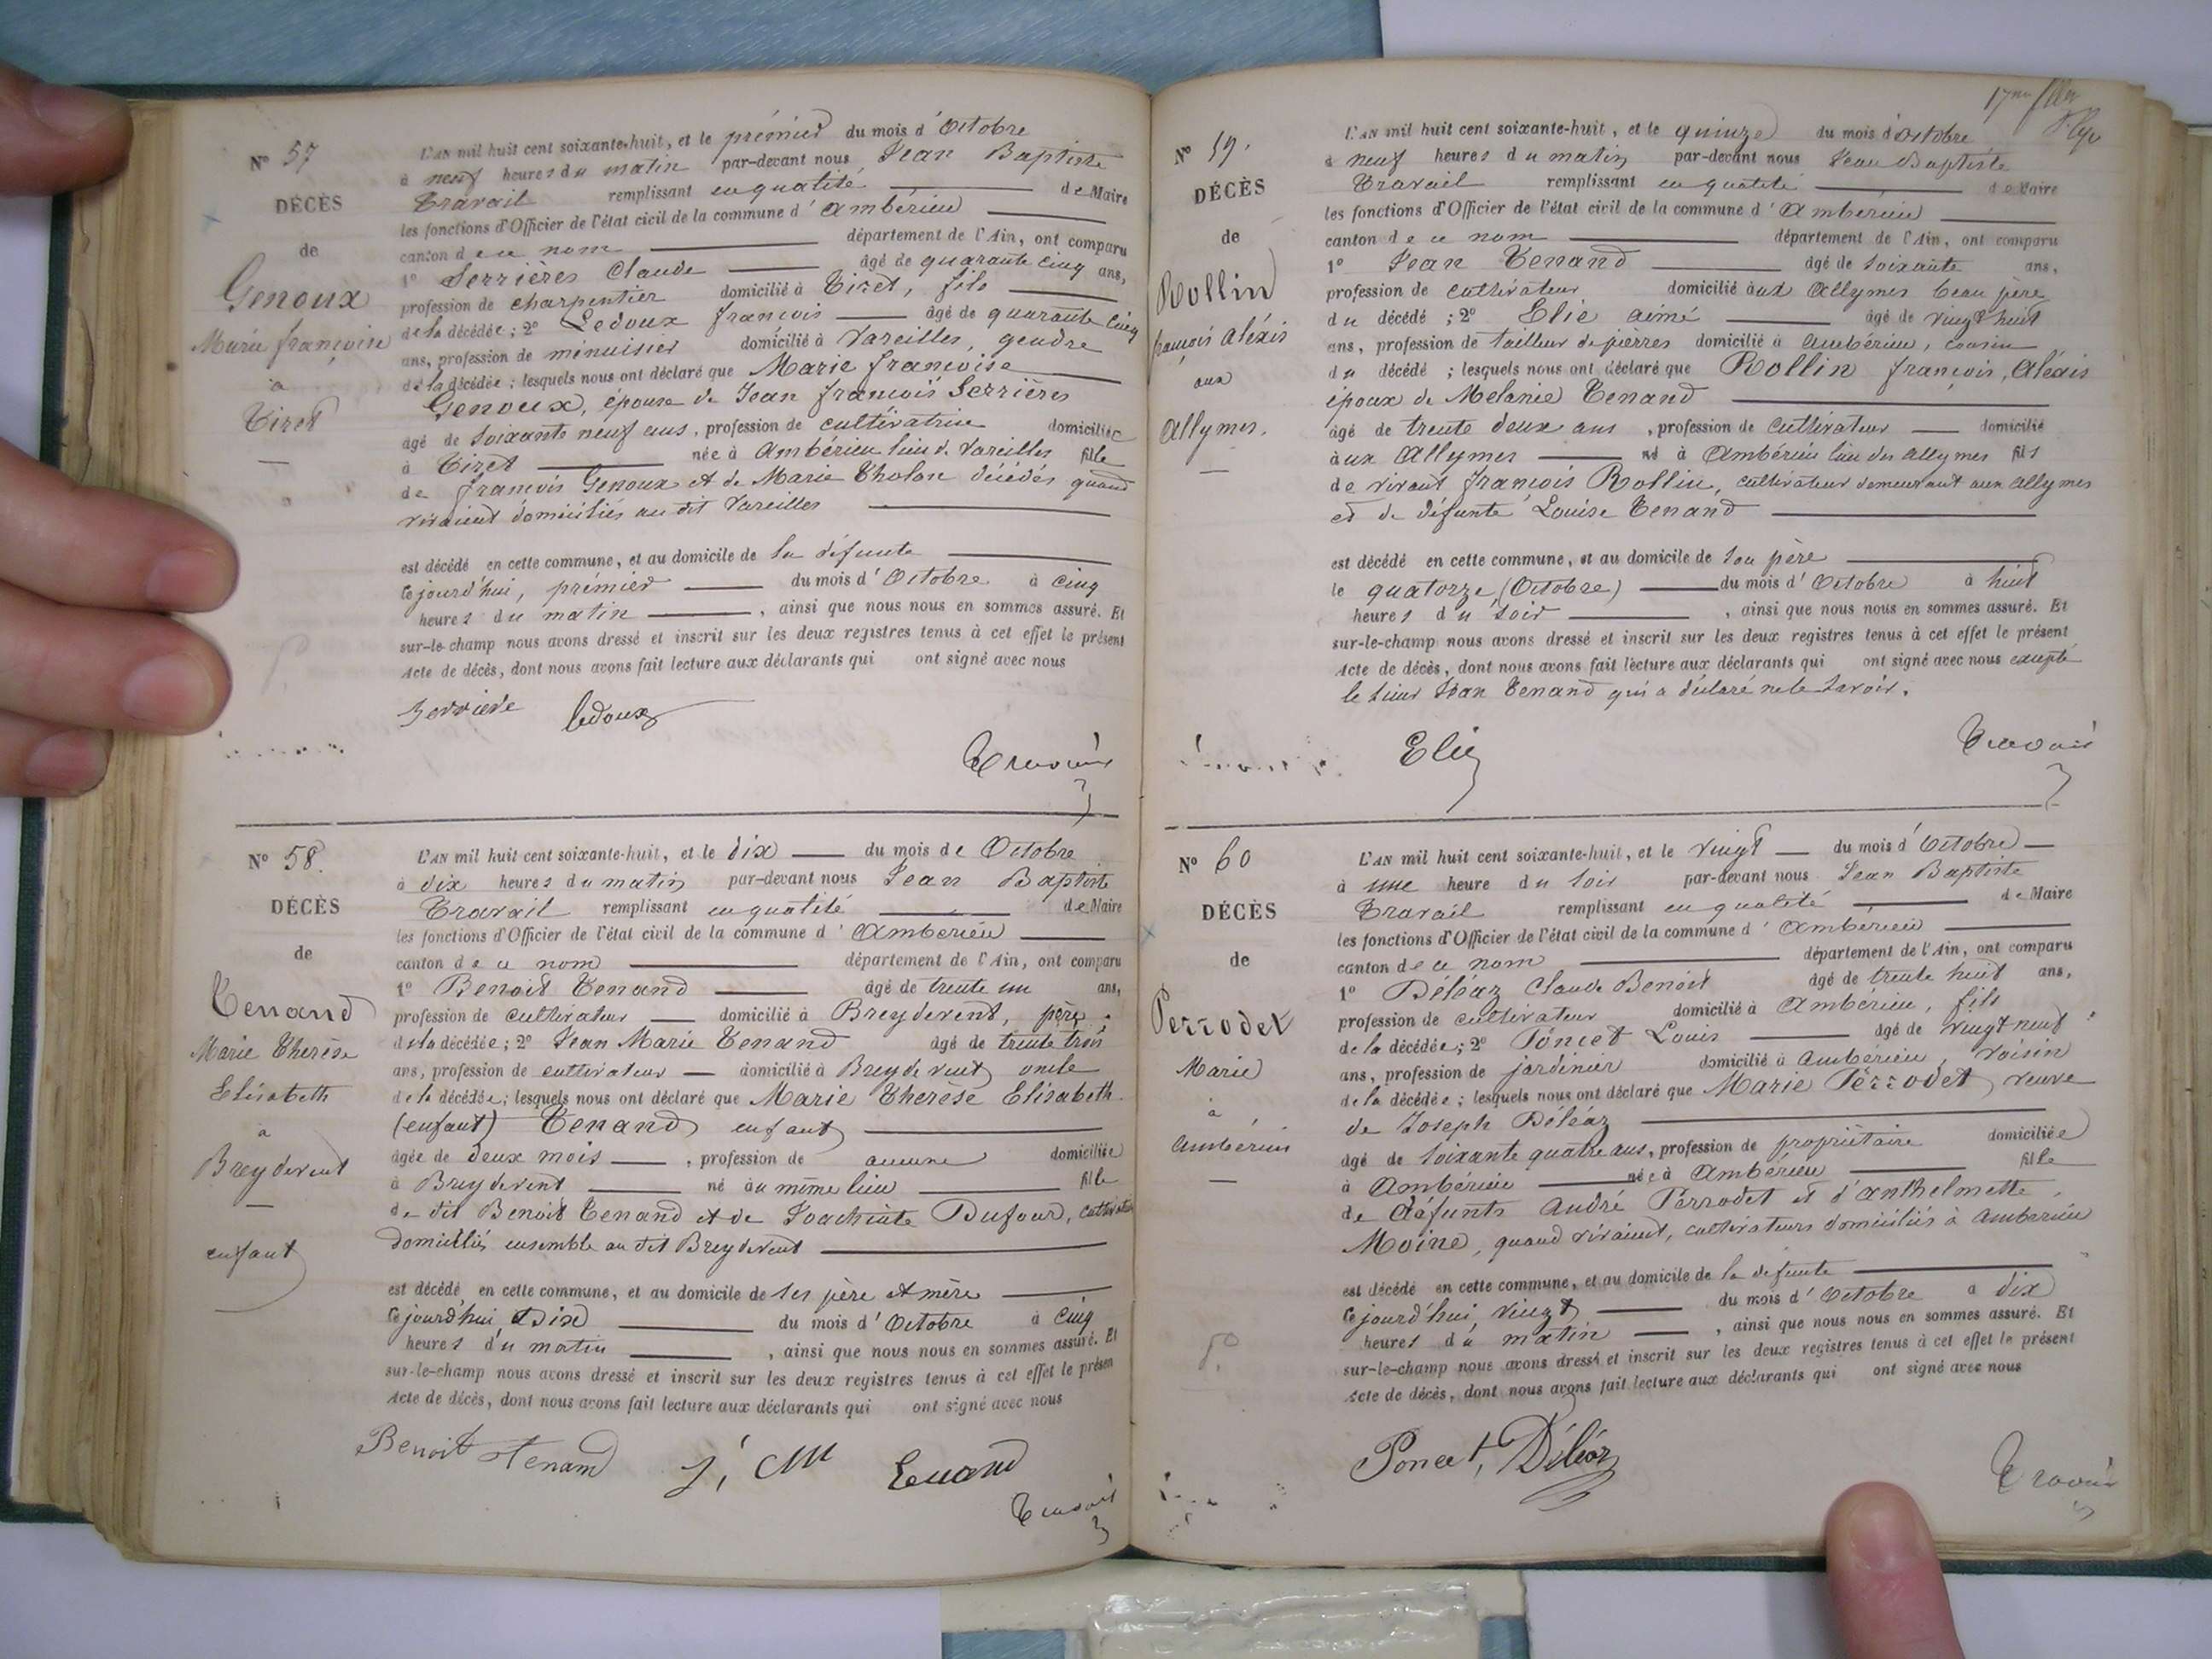 N° 57
DÉCÈS
de
Genoux
Marie françoise
à
Tiret
L'AN mil huit cent soixante-huit, et le prémier du mois d'Octobre
à neuf heures du matin par-devant nous Jean Baptiste
Travail remplissant en qualité de Maire
les fonctions d'Officier de l'état civil de la commune d'Ambérieu
canton de ce nom département de l'Ain, ont comparu
1° Serrières Claude âgé de quarante cinq ans,
profession de charpentier domicilié à Tiret, fils
de la décédée; 2° Ledoux françois âgé de quarante cinq
ans, profession de ménuisier domicilié à Vareilles, gendre
de la décédée; lesquels nous ont déclaré que Marie françoise
Genoux, épouse de Jean françois Serrières
âgé de soixante neuf ans, profession de cultivatrice domiciliée
à Tiret née à Ambérieu lieu de Vareilles fille
de françois Genoux et de Marie Tholon décédés quand
vivaient domiciliés au dit Vareilles
est décédé en cette commune, et au domicile de la défunte
cejourd'hui, prémier du mois d'Octobre à cinq
heures du matin, ainsi que nous nous en sommes assuré. Et
sur-le-champ nous avons dressé et inscrit sur les deux registres tenus à cet effet le présent
Acte de décès, dont nous avons fait lecture aux déclarants qui ont signé avec nous
Serrière ledoux
Travail
N° 58.
DÉCÈS
de
Tenand
Marie Therèse
Elisabeth
à
Breydevent
enfant
L'AN mil huit cent soixante-huit, et le dix du mois de Octobre
à dix heures du matin par-devant nous Jean Baptiste
Travail remplissant en qualité de Maire
les fonctions d'Officier de l'état civil de la commune d'Ambérieu
canton de ce nom département de l'Ain, ont comparu
1° Benoit Tenand âgé de trente un ans,
profession de cultivateur domicilié à Breydevent, père
de la décédée; 2° Jean Marie Tenand âgé de trente trois
ans, profession de cultivateur domicilié à Breydevent oncle
de la décédée; lesquels nous ont déclaré que Marie Therèse Elisabeth
(enfant) Tenand enfant
âgée de deux mois, profession de aucune domiciliée
à Breydevent né au même lieu fille
de dit Benoit Tenand et de Joachinte Dufour, cultivateurs
domiciliés ensemble au dit Breydevent
est décédé en cette commune, et au domicile de ses père et mère
cejourd'hui Dix du mois d'Octobre à cinq
heures du matin, ainsi que nous nous en sommes assuré. Et
sur-le-champ nous avons dressé et inscrit sur les deux registres tenus à cet effet le présen
Acte de décès, dont nous avons fait lecture aux déclarants qui ont signé avec nous
Benoit tenand J, M Tenand
Travail
17me
N° 59.
DÉCÈS
de
Rollin
françois Aléxis
aux
Allymes.
L'AN mil huit cent soixante-huit, et le quinze du mois d'Octobre
à neuf heures du matin par-devant nous Jean Baptiste
Travail remplissant en qualité de Maire
les fonctions d'Officier de l'état civil de la commune d'Ambérieu
canton de ce nom département de l'Ain, ont comparu
1° Jean Tenand âgé de soixante ans,
profession de cultivateur domicilié aux Allymes beau père
du décédé; 2° Elie aimé âgé de vingt huit
ans, profession de tailleur de pièrres domicilié à Ambérieu, cousin
du décédé; lesquels nous ont déclaré que Rollin françois, Aléxis
époux de Melanie Tenand
âgé de trente deux ans, profession de cultivateur domicilié
aux Allymes né à Ambérieu lieu des Allymes fils
de vivant françois Rollin, cultivateur demeurant aux Allymes
et de défunte Louise Tenand
est décédé en cette commune, et au domicile de son père
le quatorze (Octobre) du mois d'Octobre à huit
heures du soir, ainsi que nous nous en sommes assuré. Et
sur-le-champ nous avons dressé et inscrit sur les deux registres tenus à cet effet le présent
Acte de décès, dont nous avons fait lecture aux déclarants qui ont signé avec nous excepté
le sieur Jean Tenand qui a déclaré ne le savoir.
Elie
Travail
N° 60
DÉCÈS
de
Perrodet
Marie
à
Ambérieu
L'AN mil huit cent soixante-huit, et le vingt du mois d'Octobre
à une heure du soir par-devant nous Jean Baptiste
Travail remplissant en qualité de Maire
les fonctions d'Officier de l'état civil de la commune d'Ambérieu
canton de ce nom département de l'Ain, ont comparu
1° Déléaz Claude Benoit âgé de trente huit ans,
profession de cultivateur domicilié à Ambérieu, fils
de la décédée; 2° Poncet Louis âgé de vingt neuf
ans, profession de jardinier domicilié à Ambérieu, voisin
de la décédée; lesquels nous ont déclaré que Marie Pérrodet, veuve
de Joseph Déléaz
âgé de soixante quatre ans, profession de propriétaire domiciliée
à Ambérieu née à Ambérieu fille
de défunts André Pérrodet et d'Anthelmette
Moine, quand vivaient, cultivateurs domiciliés à Ambérieu
est décédé en cette commune, et au domicile de la défunte
cejourd'hui, vingt du mois d'Octobre à dix
heures du matin, ainsi que nous nous en sommes assuré. Et
sur-le-champ nous avons dressé et inscrit sur les deux registres tenus à cet effet le présent
Acte de décès, dont nous avons fait lecture aux déclarants qui ont signé avec nous
Poncet, Déléaz
Travail